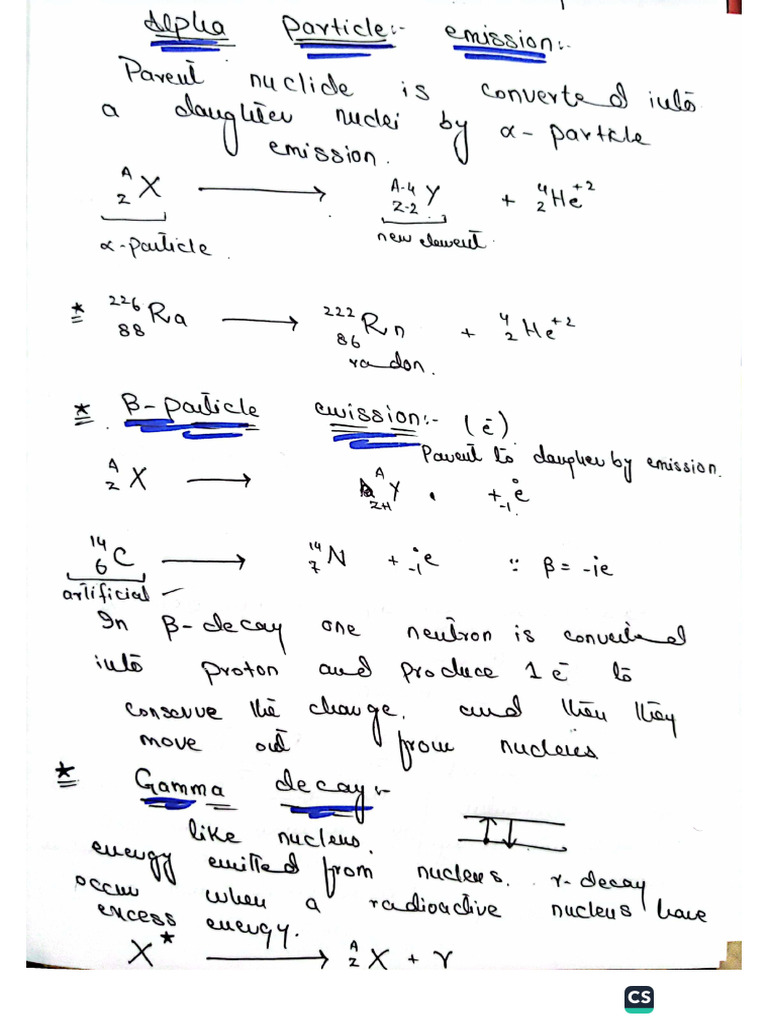 Alpha Particle:- emission:-
Parent nuclide is converted into
a daughter nuclei by α-particle
emission.
ᴬ_Z X ⟶ ᴬ⁻⁴_Z-2 Y + ⁴₂He⁺²
α-particle. new element
* ²²⁶₈₈Ra ⟶ ²²²₈₆Rn + ⁴₂He⁺²
radon.
* β-particle emission:- (ē)
Parent to daugher by emission.
ᴬ_Z X ⟶ ᴬ_Z+1 Y + ⁰₋₁e
¹⁴₆C ⟶ ¹⁴₇N + ₋₁e ∵ β = -ie
artificial
In β-decay one neutron is converted
into proton and produce 1 ē to
conserve the charge. and then they
move out from nucleus
* Gamma decay:-
like nucleus.
energy emitted from nucleus. γ-decay
occur when a radioactive nucleus have
excess energy.
X* ⟶ ᴬ_Z X + γ
CS